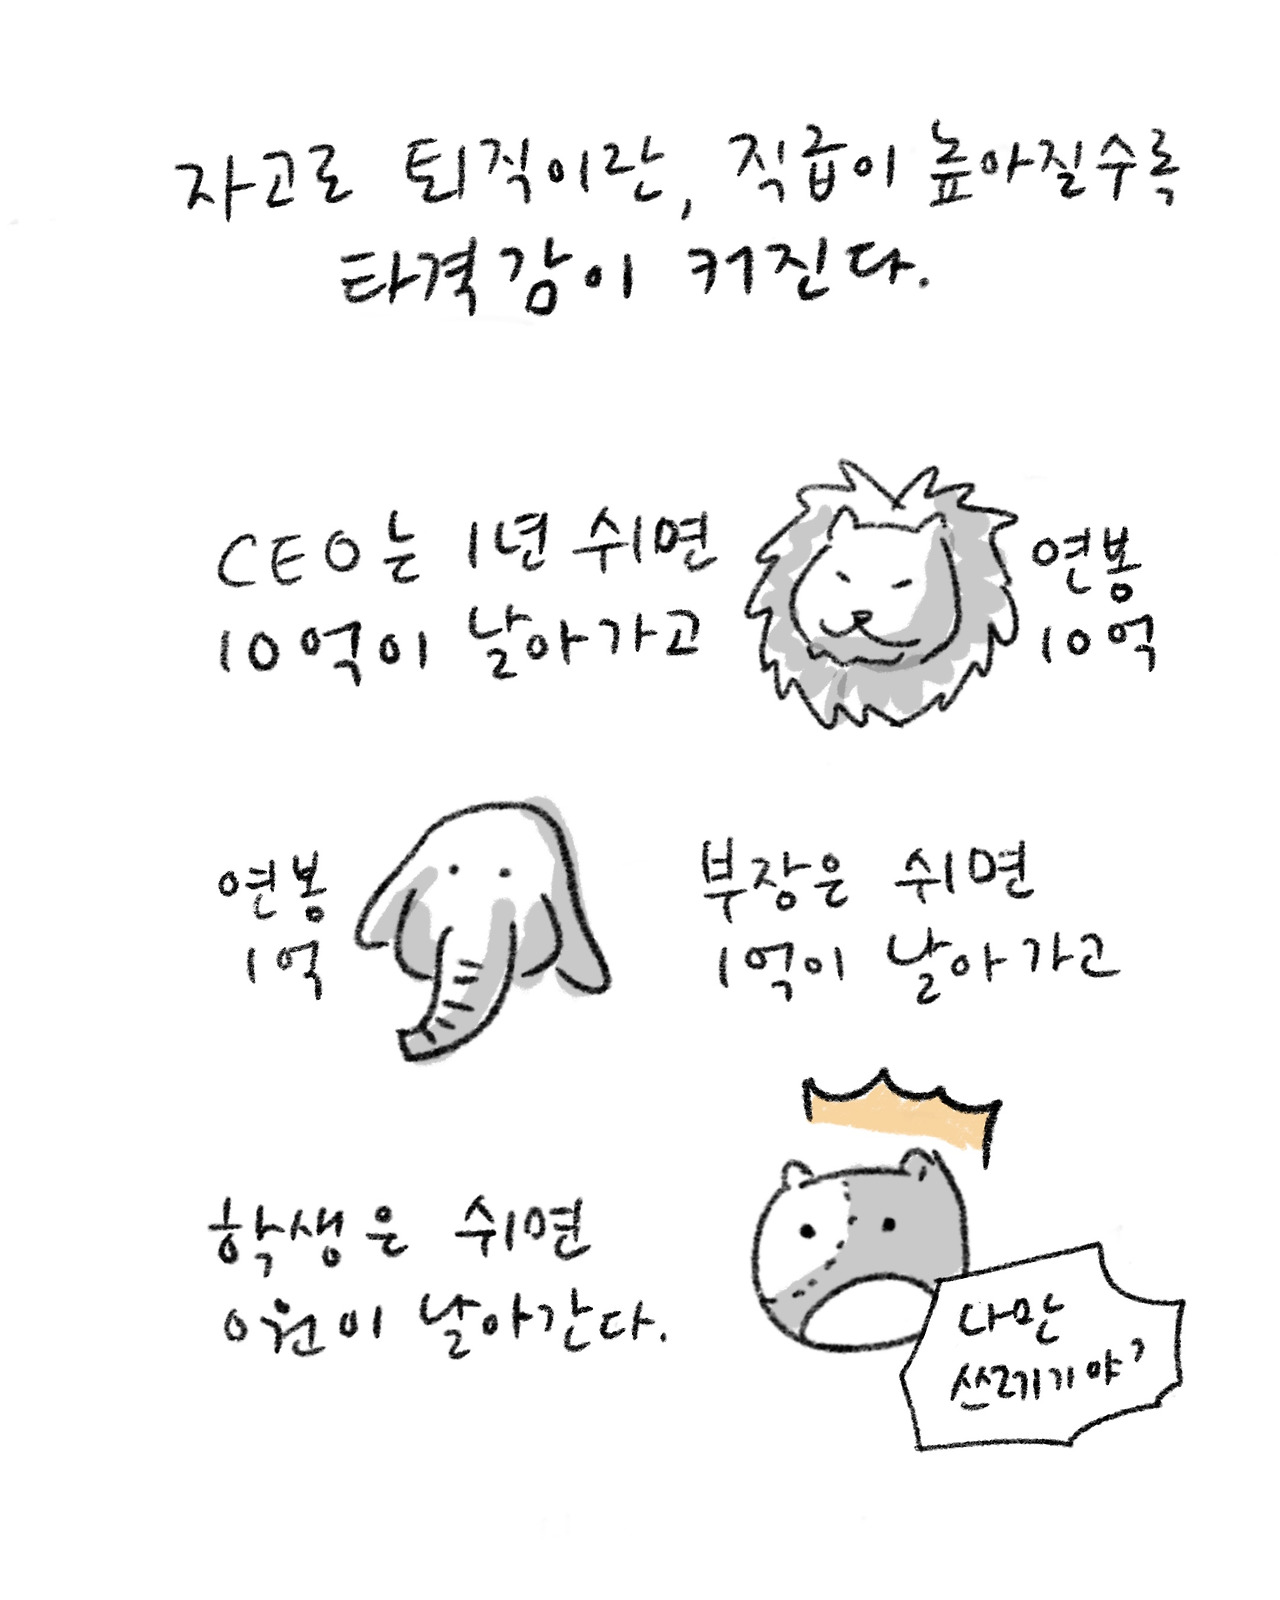 자고로 퇴직이란, 직급이 높아질수록
타격감이 커진다.
CEO는 1년 쉬면
10억이 날아가고
연봉
10억
연봉
1억
부장은 쉬면
1억이 날아가고
학생은 쉬면
0원이 날아간다.
나만
쓰레기야?